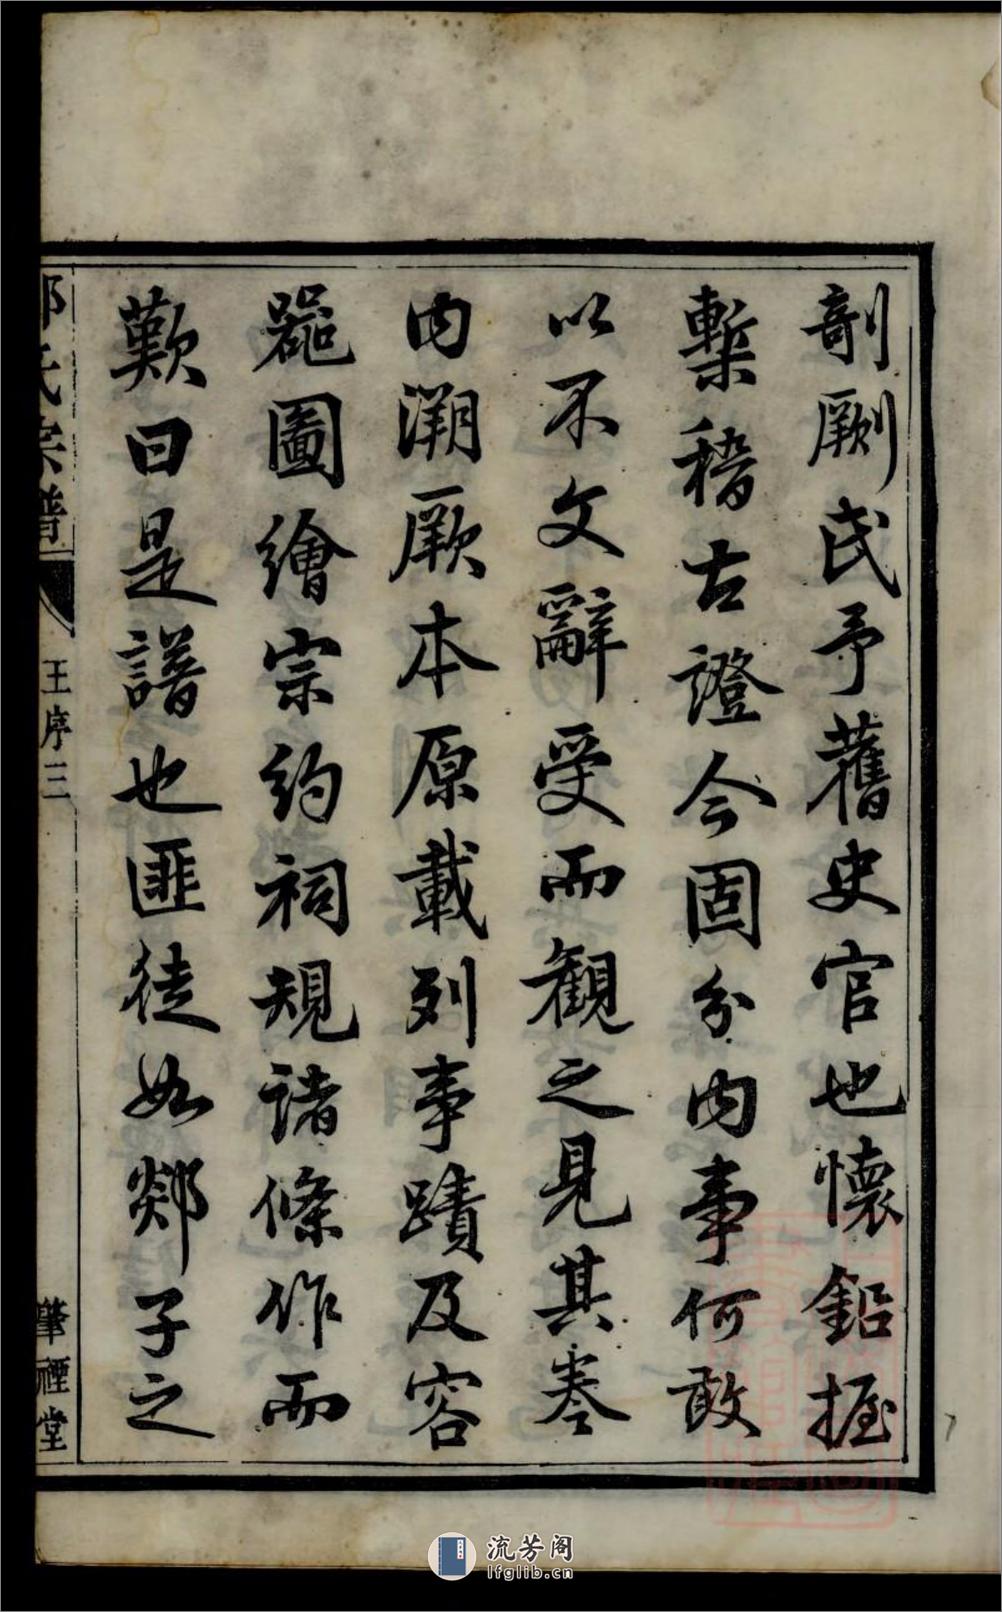 剞劂氏予舊史官也懷鉛握
槧稽古證今固分内事何敢
以不文辭受而觀之見其奏
内溯厥本原載列事蹟及容
器圖繪宗約祠規諸條作而
歎曰是譜也匪徒如郯子之
氏宗譜
王序三
肇禋堂
流芳阁
lfglib.cn